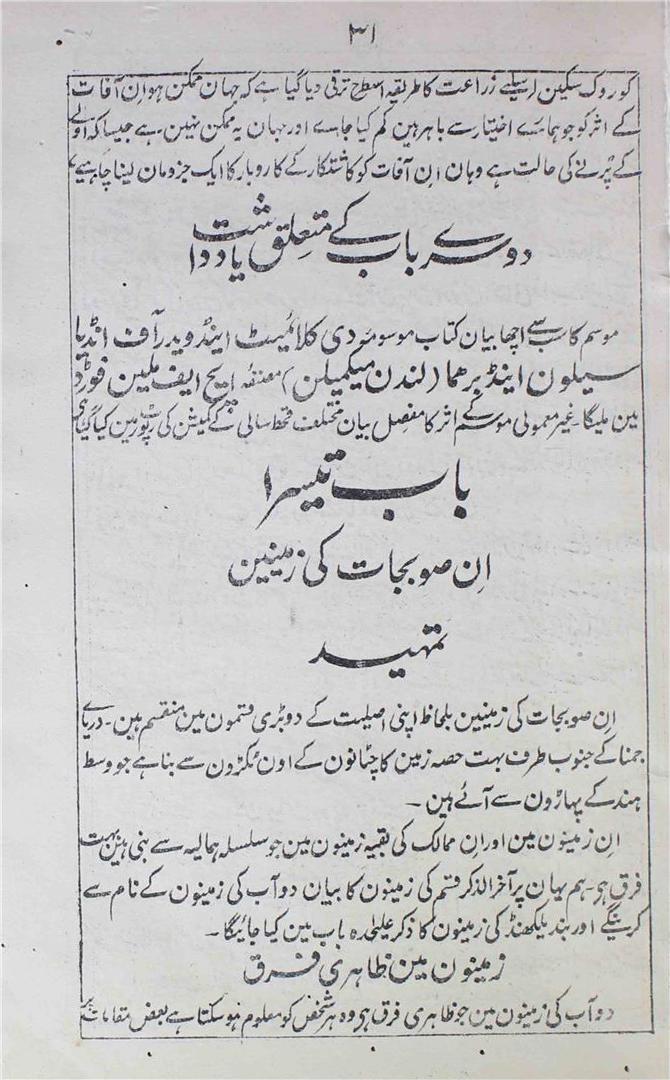 ۳۱
کو روک سکین اسیلے زراعت کا طریقہ اسطرح ترقی دیا گیا ہے کہ جہان ممکن ہو ان آفات
کے اثر کو جو ہمارے اختیار سے باہر ہین کم کیا جاے اور جہان یہ ممکن نہین ہے جیسا کہ اولے
کے پڑنے کی حالت ہے وہان ان آفات کو کاشتکار کے کاروبار کا ایک جزو مان لینا چاہیے
دوسرے باب کے متعلق یادداشت
موسم کا سب سے اچھا بیان کتاب موسومہ دی کلائمیٹ اینڈ ویدر آف انڈیا
سیلون اینڈ برھما (لندن میکمیلن) مصنفہ ایچ ایف بلین فورڈ
مین ملیگا۔ غیر معمولی موسم کے اثر کا مفصل بیان مختلف قحط سالی کے کمیشن کی رپورٹ مین کیا گیا ہی
باب تیسرا
ان صوبجات کی زمینین
تمہید
ان صوبجات کی زمینین بلحاظ اپنی اصلیت کے دو بڑی قسمون مین منقسم ہین۔ دریاے
جمنا کے جنوب طرف بہت حصہ زمین کا چٹانون کے اون ٹکڑون سے بنا ہے جو وسط
ہند کے پہاڑون سے آئے ہین۔
ان زمینون مین اور ان ممالک کی بقیہ زمینون مین جو سلسلہ ہمالیہ سے بنی ہین بہت
فرق ہی۔ ہم یہان پر آخر الذکر قسم کی زمینون کا بیان دوآب کی زمینون کے نام سے
کرینگے اور بندیلکھنڈ کی زمینون کا ذکر علیٰحدہ باب مین کیا جائیگا۔
زمینون مین ظاہری فرق
دوآب کی زمینون مین جو ظاہری فرق ہی وہ ہر شخص کو معلوم ہو سکتا ہے بعض مقامات پر